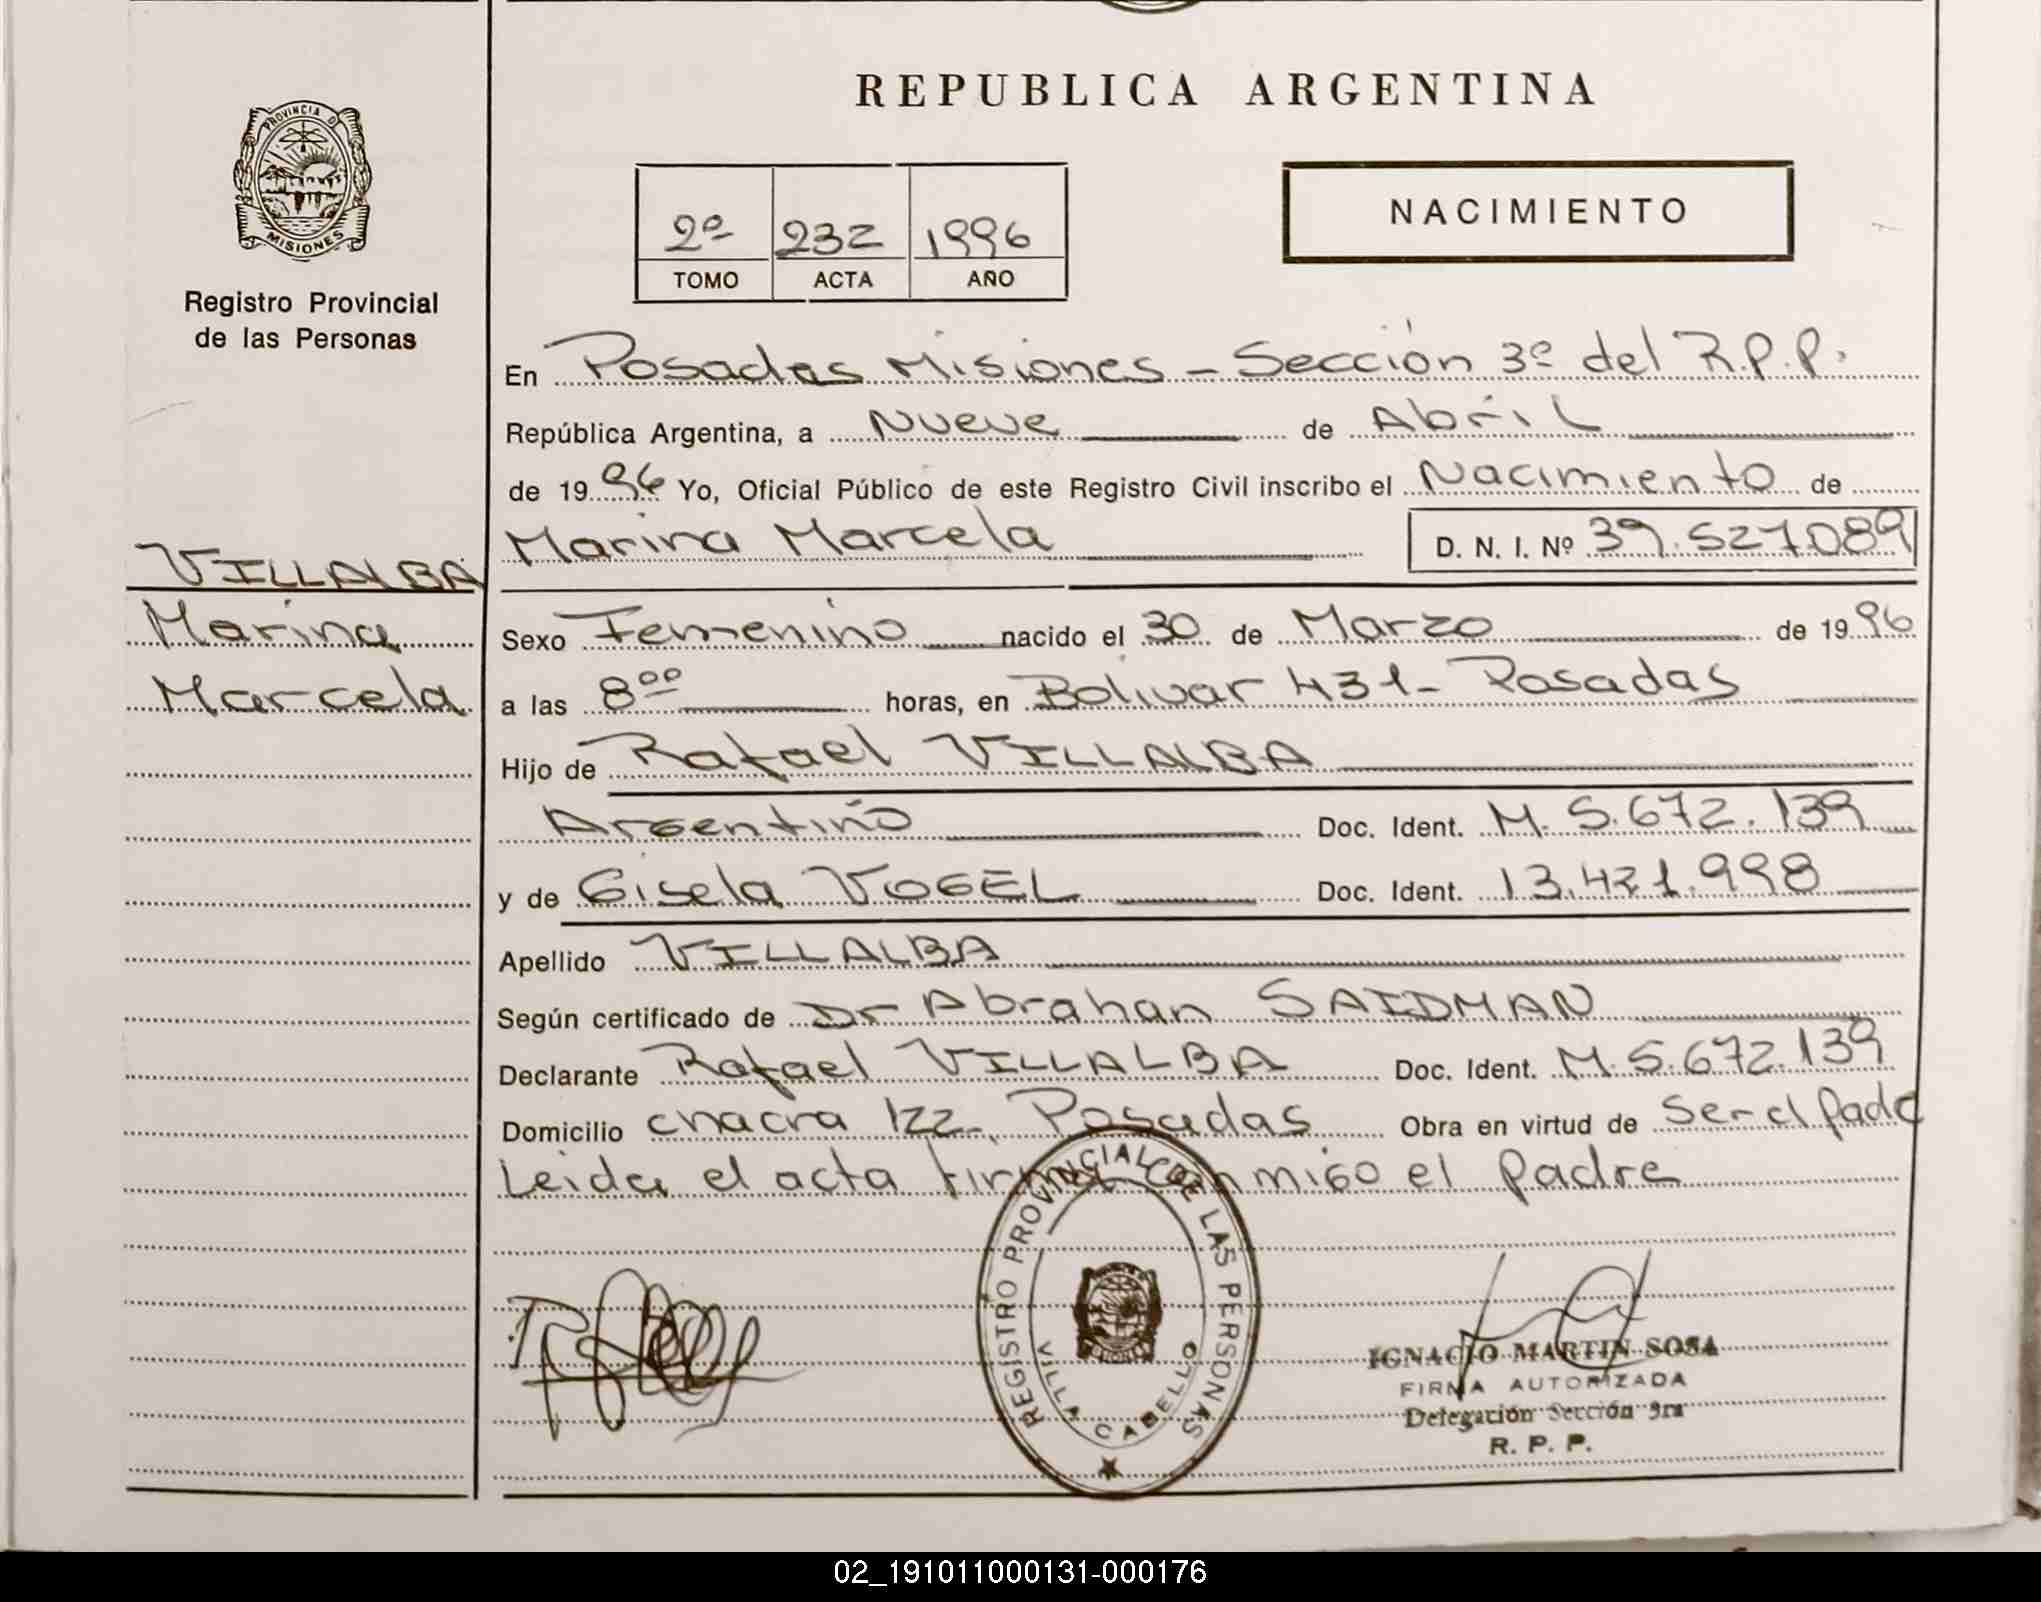 REPUBLICA ARGENTINA
PROVINCIA D
MISIONES
Registro Provincial
de las Personas
2º 232 1996
TOMO ACTA AÑO
NACIMIENTO
En Posadas Misiones - Sección 3º del R.P.P.
República Argentina, a Nueve de Abril
de 1996 Yo, Oficial Público de este Registro Civil inscribo el Nacimiento de
Marina Marcela D. N. I. Nº 39.527.089
VILLALBA
Marina
Marcela
Sexo Femenino nacido el 30 de Marzo de 1996
a las 8ºº horas, en Bolivar 431- Posadas
Hijo de Rafael VILLALBA
Argentino Doc. Ident. M. 5.672.139
y de Gisela VOGEL Doc. Ident. 13.421.998
Apellido VILLALBA
Según certificado de Dr Abrahan SAIDMAN
Declarante Rafael VILLALBA Doc. Ident. M. 5.672.139
Domicilio chacra 122-, Posadas Obra en virtud de Ser el padre
Leida el acta firma conmigo el padre
REGISTRO PROVINCIAL DE LAS PERSONAS
VILLA CABELLO
IGNACIO MARTIN SOSA
FIRMA AUTORIZADA
Delegación Sección 3ra
R. P. P.
02_191011000131-000176